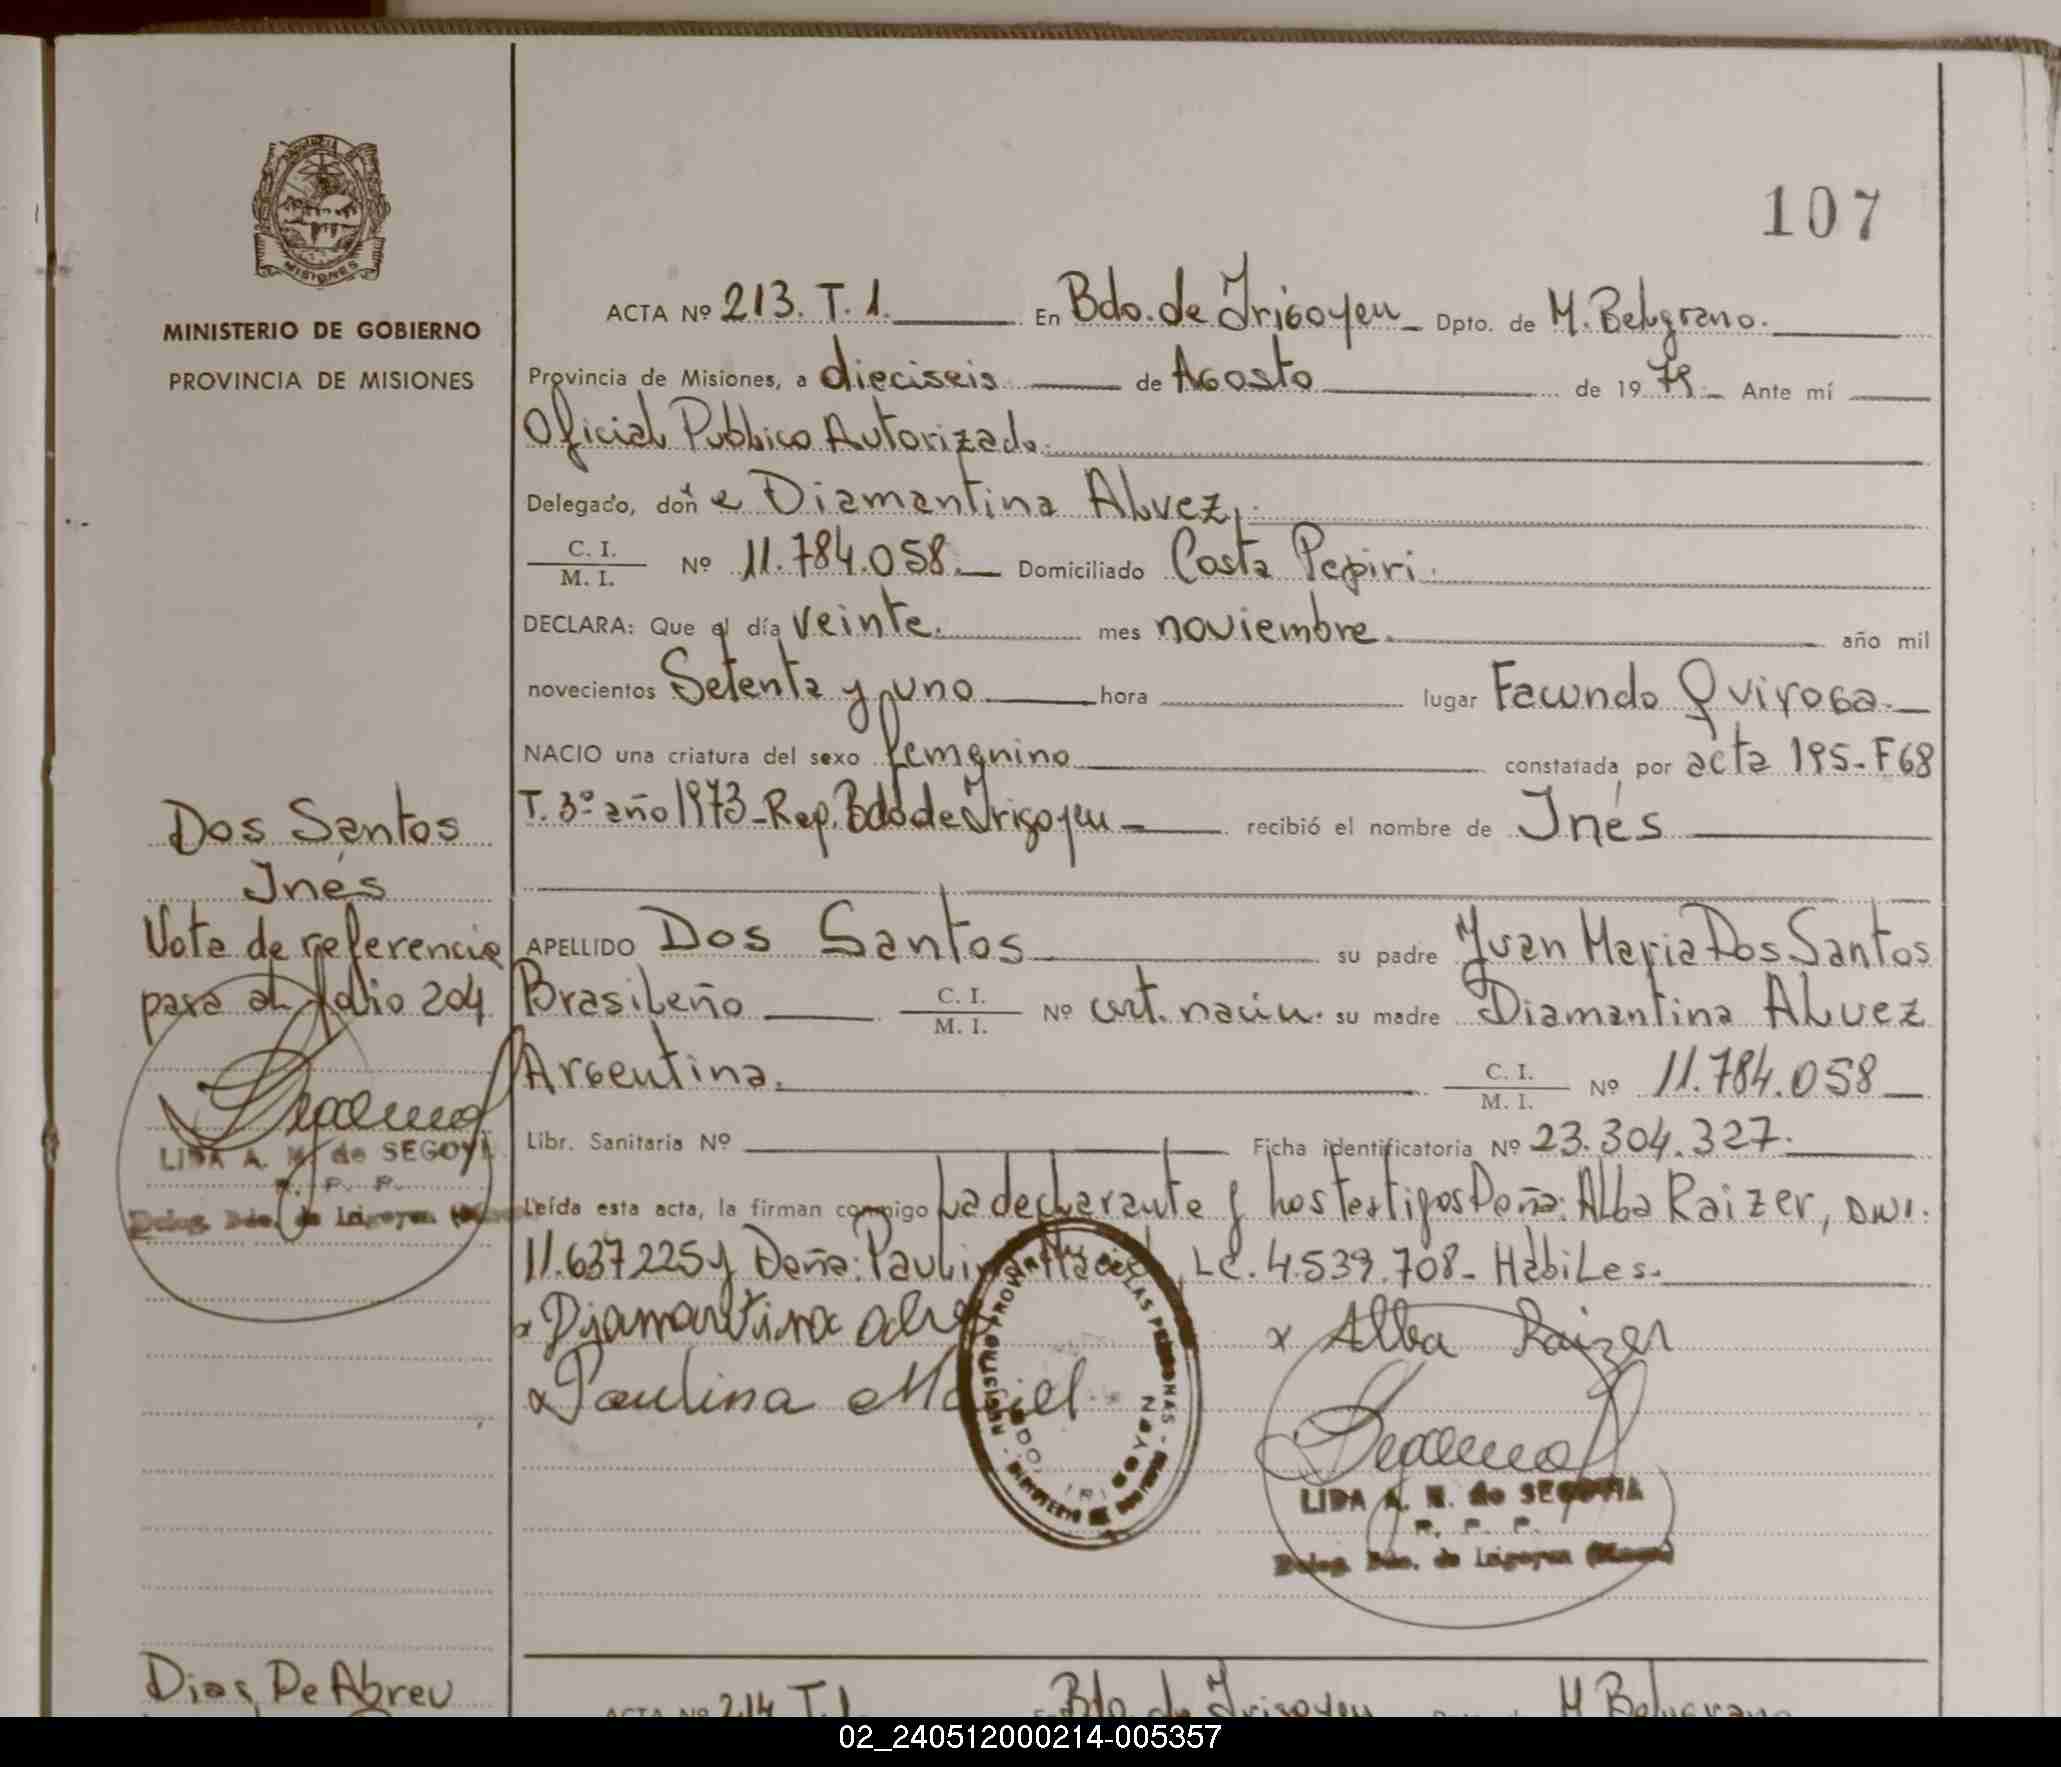 107
MISIONES
MINISTERIO DE GOBIERNO
PROVINCIA DE MISIONES
ACTA Nº 213. T. 1. En Bdo. de Irigoyen Dpto. de M. Belgrano.
Provincia de Misiones, a dieciseis de Agosto de 1979 Ante mí
Oficial Publico Autorizado.
Delegado, doña Diamantina Alvez.
C. I.
M. I. Nº 11.784.058. Domiciliado Costa Pepiri.
DECLARA: Que el día veinte. mes noviembre. año mil
novecientos Setenta y uno hora lugar Facundo Quiroga.
NACIO una criatura del sexo femenino constatada por acta 195-F68
T. 3º año 1973-Rep. Bdo de Irigoyen recibió el nombre de Inés
APELLIDO Dos Santos su padre Juan Maria Dos Santos
Brasileño C. I. M. I. Nº cert. nacim. su madre Diamantina Alvez
Argentina. C. I. M. I. Nº 11.784.058
Libr. Sanitaria Nº Ficha identificatoria Nº 23.304.327.
Leída esta acta, la firman conmigo La declarante y los testigos Doña: Alba Raizer, DNI.
11.637.225 y Doña: Paulina Maciel, LC. 4.539.708- Habiles.
x Djamantina alve
x Alba Raizer
x Paulina Maciel
REGISTRO PROVINCIAL DE LAS PERSONAS
BDO. IRIGOYEN
LIDA A. M. de SEGOVIA
R. P. P.
Deleg. Bdo. de Irigoyen
Dos Santos
Inés
Nota de referencia
para al folio 204
LIDA A. M. de SEGOVIA
R. P. P.
Deleg. Bdo. de Irigoyen
Dias De Abreu
ACTA Nº 214 T.1. En Bdo. de Irigoyen Dpto. de M. Belgrano
02_240512000214-005357